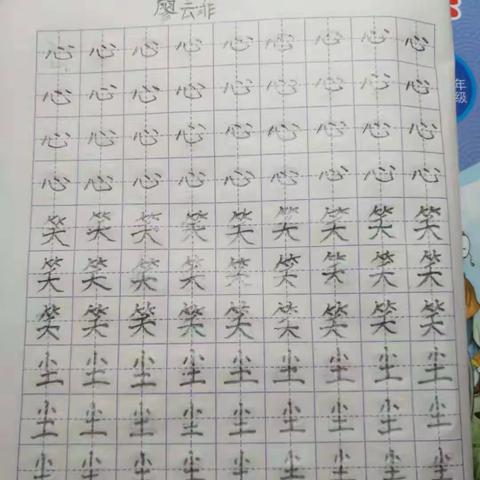 廖云非
心心心心心心心心心
心心心心心心心心心
心心心心心心心心心
心心心心心心心心心
笑笑笑笑笑笑笑笑笑
笑笑笑笑笑笑笑笑笑
笑笑笑笑笑笑笑笑笑
尘尘尘尘尘尘尘尘尘
尘尘尘尘尘尘尘尘尘
尘尘尘尘尘尘尘尘尘
年
级